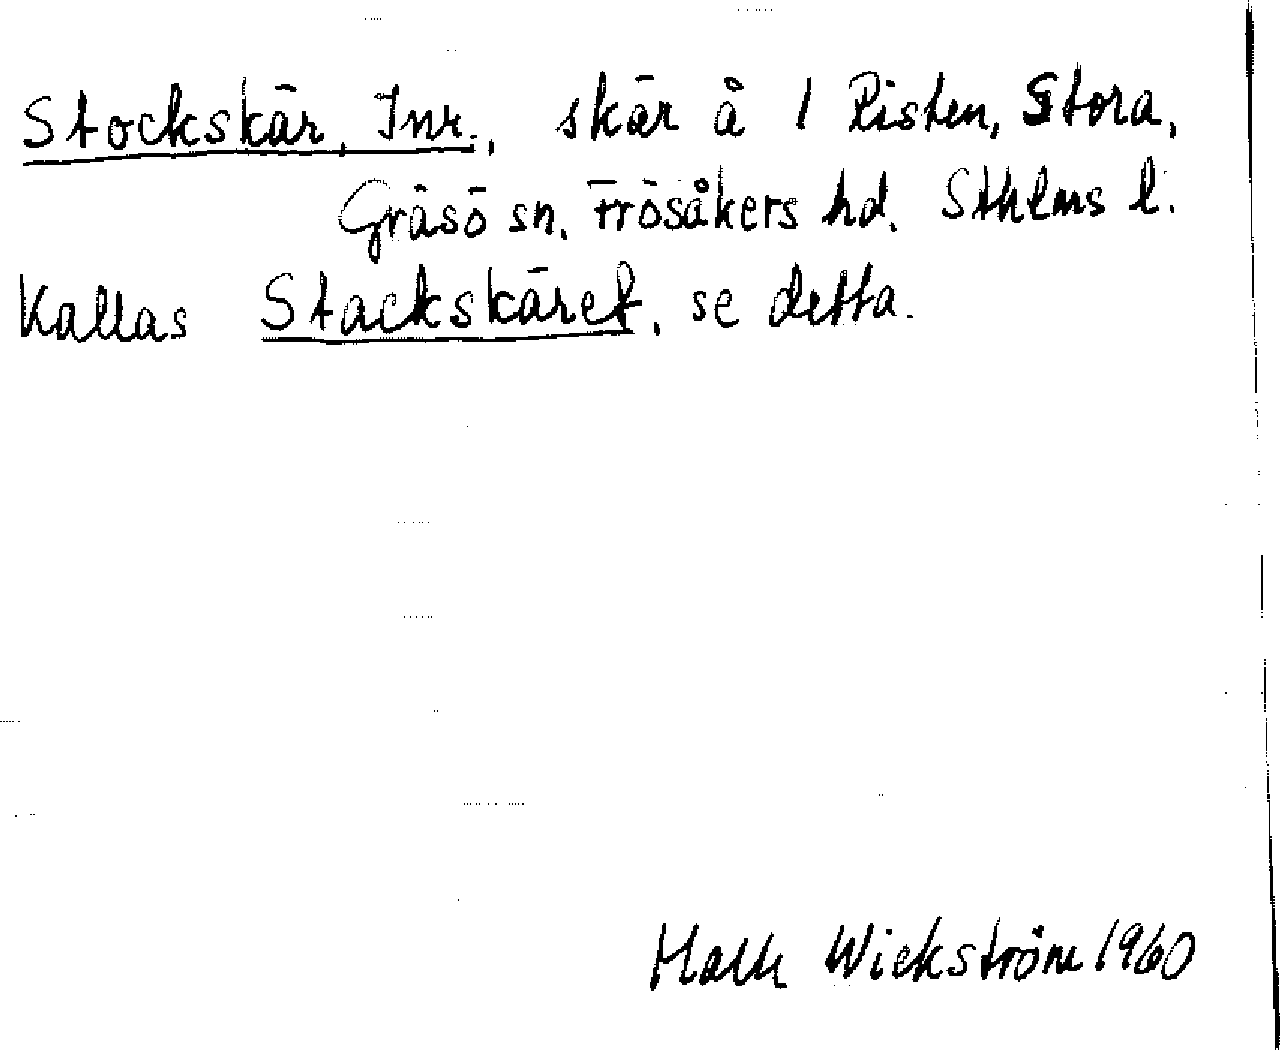 Stockskär, Inr., skär å 1 Risten, Stora,
Gräsö sn. Frösåkers hd. Sthlms l.
Kallas Stackskäret, se detta.
Wickström 1960